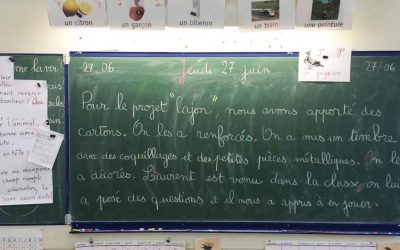 un citron
un garçon
un biberon
un train
une peinture
27/06
Jeudi 27 juin
27/06
un pigeon
Pour le projet "Cajon", nous avons apporté des
cartons. On les a renforcés. On a mis un timbre
avec des coquillages et des petites pièces métalliques. On les
a décorés. Laurent est venu dans la classe, on lui
a posé des questions et il nous a appris à en jouer.